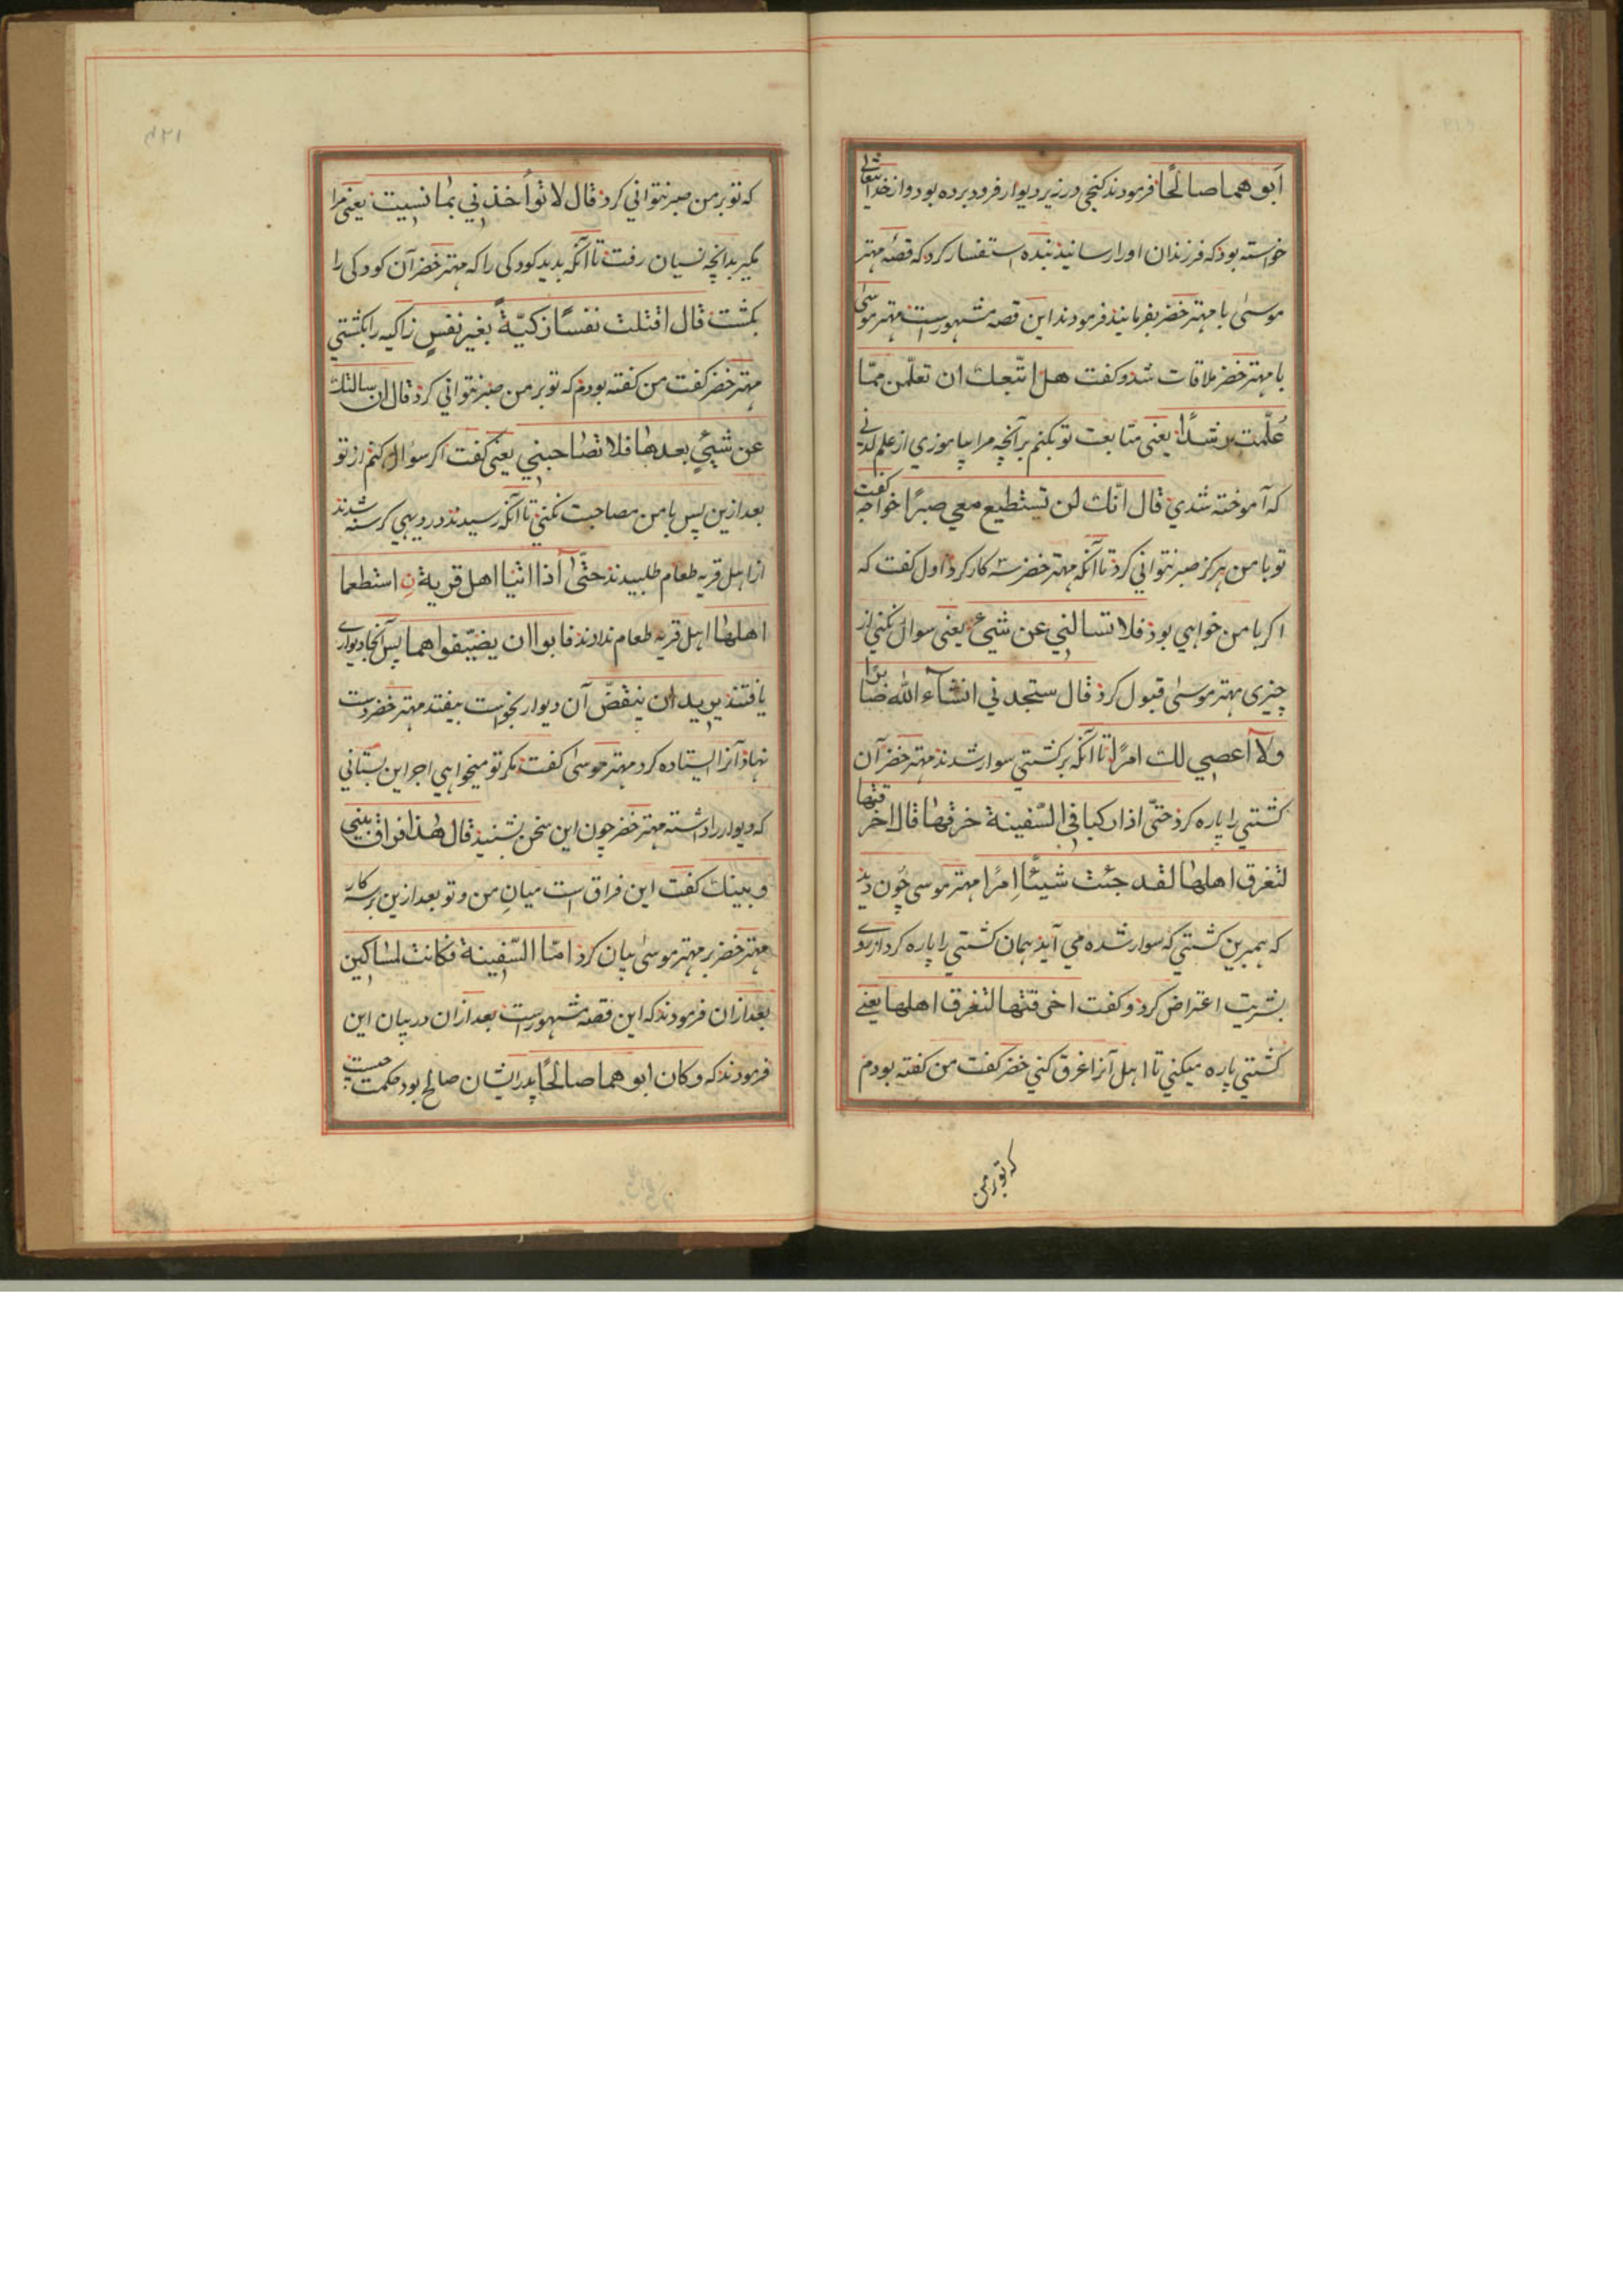 ابو هما صالحًا فرمودند کنجی در زیر دیوار فرود برده بود و از خدایتعالی
خواسته بود که فرزندان او را رسانیذ بنده استفسار کرد که قصهٔ مهتر
موسیٰ با مهتر خضر بفرمایند فرمودند این قصه مشهور است مهتر موسیٰ
با مهتر خضر ملاقات شد و کفت هل اتّبعك ان تعلّمن ممّا
عُلّمت رشدًا یعنی متابعت تو بکنم بر آنچه مرا بیاموزي از علم لدنی
که آموخته شدي قال انّك لن تستطیع معي صبرًا خواجه کفت
تو با من هرکز صبر نتوانی کرد تا آنکه مهتر خضر سه کار کرد اول کفت که
اکر با من خواهي بود فلا تسالني عن شيء یعنی سوال نکنی از
چیزی مهتر موسیٰ قبول کرد قال ستجدني انشآء الله صابرًا
ولآ اعصي لك امرًا تا آنکه بر کشتي سوار شدند مهتر خضر آن
کشتي را پاره کرد حتّی اذا رکبا في السّفینة خرقها قال اخرقتها
لتغرق اهلها لقد جئت شیئًا اِمرًا مهتر موسی چون دید
که همبرین کشتي که سوار شده مي آیند همان کشتي را پاره کرد از روی
بشریت اعتراض کرد و کفت اخرقتها لتغرق اهلها یعنے
کشتي پاره میکني تا اهل آنرا غرق کني خضر کفت من کفته بودم
که تو بر من
که تو بر من صبر نتوانی کرد قال لا تؤاخذني بما نسیت یعنی مرا
مکیر بدانچه نسیان رفت تا آنکه بدید کودکی را که مهتر خضر آن کودکی را
بکشت قال اقتلت نفسًا زکیّةً بغیر نفسٍ زاکیه را بکشتي
مهتر خضر کفت من کفته بودم که تو بر من صبر نتوانی کرد قال ان سالتك
عن شيءٍ بعدها فلا تصاحبني یعنی کفت اکر سوال کنم از تو
بعد ازین پس با من مصاحبت نکنی تا آنکه رسیدند در دیهي کرسنه شدند
از اهل قریه طعام طلبیدند حتّیٰ اذا اتیا اهل قریة نِ استطعما
اهلها اهل قریه طعام ندادند فابوا ان یضیّفوا هما پس آنجا دیواری
یافتند یرید ان ینقضّ آن دیوار بخواست بیفتد مهتر خضر دست
نهاد آنرا ایستاده کرد مهتر موسیٰ کفت مکر تو میخواهي اجر این بستانی
که دیوار را داشته مهتر خضر چون این سخن بشنید قال هٰذا فراق بیني
و بینك کفت این فراق است میانِ من و تو بعد ازین بر سه کار
مهتر خضر بر مهتر موسیٰ بیان کرد امّا السّفینة فکانت لمساکین
بعد ازان فرمودند که این قصه مشهور است بعد ازان در بیان این
فرمودند که و کان ابو هما صالحًا پدر ایشان صالح بود حکمت چیست